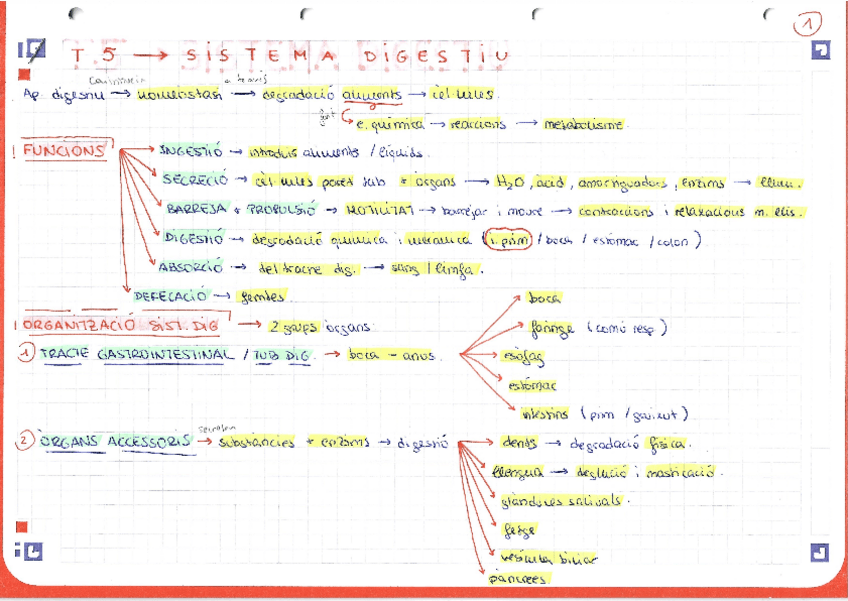 1
T.5 → SISTEMA DIGESTIU
Contribueix a través
Ap. digestiu → homeostasi → degradació aliments → cèl·lules.
e. química → reaccions → metabolisme.
! FUNCIONS
INGESTIÓ → introduir aliments / líquids.
SECRECIÓ → cèl·lules pared tub + òrgans → H2O, àcid, amortiguadors, enzims → llum.
BARREJA + PROPULSIÓ → MOTILITAT → barrejar i moure → contraccions i relaxacions m. llis.
DIGESTIÓ → degradació química i mecànica (i. prim / boca / estómac / colon)
ABSORCIÓ → del tracte dig. → sang / limfa.
DEFECACIÓ → femtes.
! ORGANITZACIÓ SIST. DIG → 2 grups òrgans
1 TRACTE GASTROINTESTINAL / TUB DIG. → boca - anus.
boca
faringe (comú resp)
esòfag
estómac
intestins (prim / gruixut)
secreten
2 ÒRGANS ACCESSORIS → substàncies + enzims → digestió
dents → degradació física.
llengua → deglució i masticació.
glàndules salivals.
fetge
vesícula biliar
pàncrees.